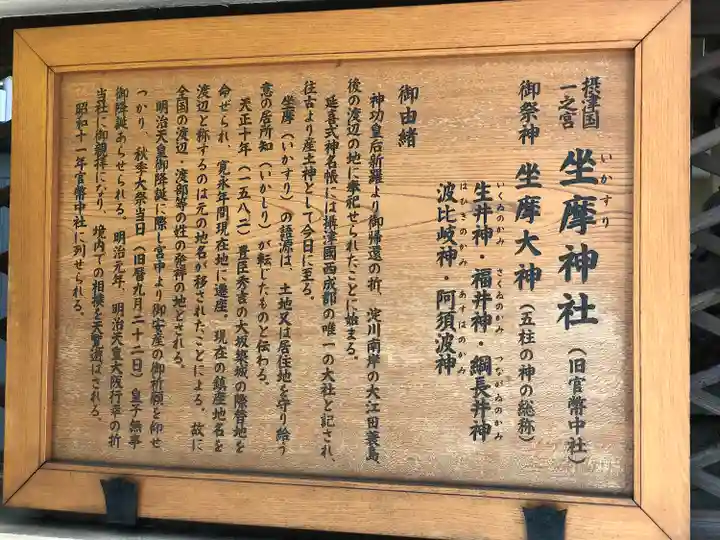 摂津国
一之宮
いかすり
坐摩神社
(旧官幣中社)
御祭神 坐摩大神(五柱の神の総称)
いくゐのかみ さくゐのかみ つながゐのかみ
生井神・福井神・綱長井神
はひきのかみ あすはのかみ
波比岐神・阿須波神
御由緒
神功皇后新羅より御帰還の折、淀川南岸の大江田蓑島、
後の渡辺の地に奉祀せられたことに始まる。
延喜式神名帳には摂津國西成郡の唯一の大社と記され、
往古より産土神として今日に至る。
坐摩(いかすり)の語源は、土地又は居住地を守り給う
意の居所知(いかしり)が転じたものと伝わる。
天正十年(一五八二)豊臣秀吉の大坂築城の際替地を
命ぜられ、寛永年間現在地に遷座。現在の鎮座地名を
渡辺と称するのは元の地名が移されたことによる。故に
全国の渡辺・渡部等の姓の発祥の地とされる。
明治天皇御降誕に際し宮中より御安産の御祈願を仰せ
つかり、秋季大祭当日(旧暦九月二十二日)皇子無事
御降誕あらせられる。明治元年、明治天皇大阪行幸の折
当社に御親拝になり、境内での相撲を天覧遊ばされる。
昭和十一年官幣中社に列せられる。